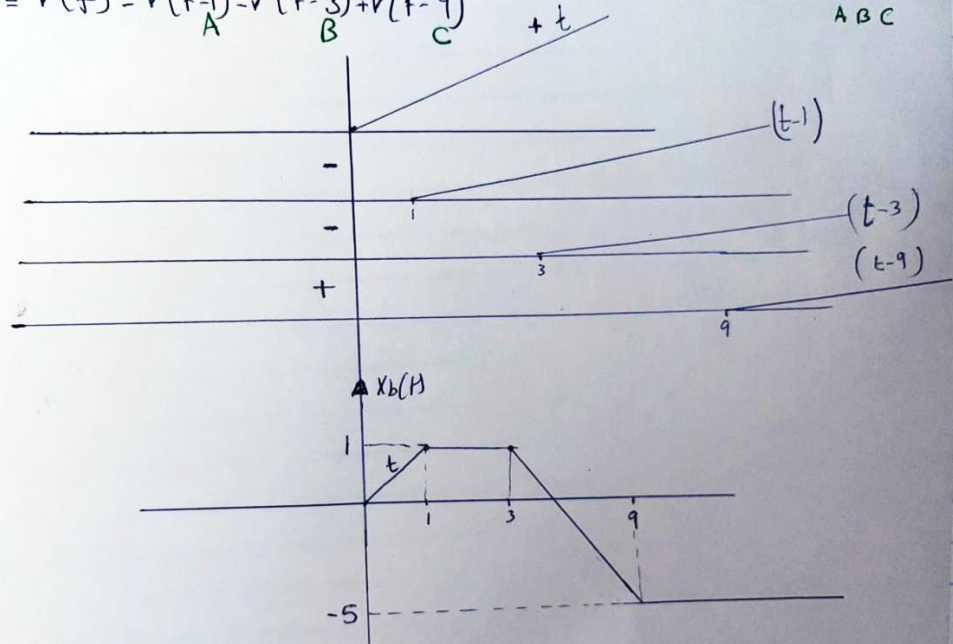 = r(t) - r(t-1) - r(t-3) + r(t-9)
A B C
A B C
+ t
-
(t-1)
1
-
(t-3)
3
+
(t-9)
9
Xb(t)
1
t
1 3 9
-5